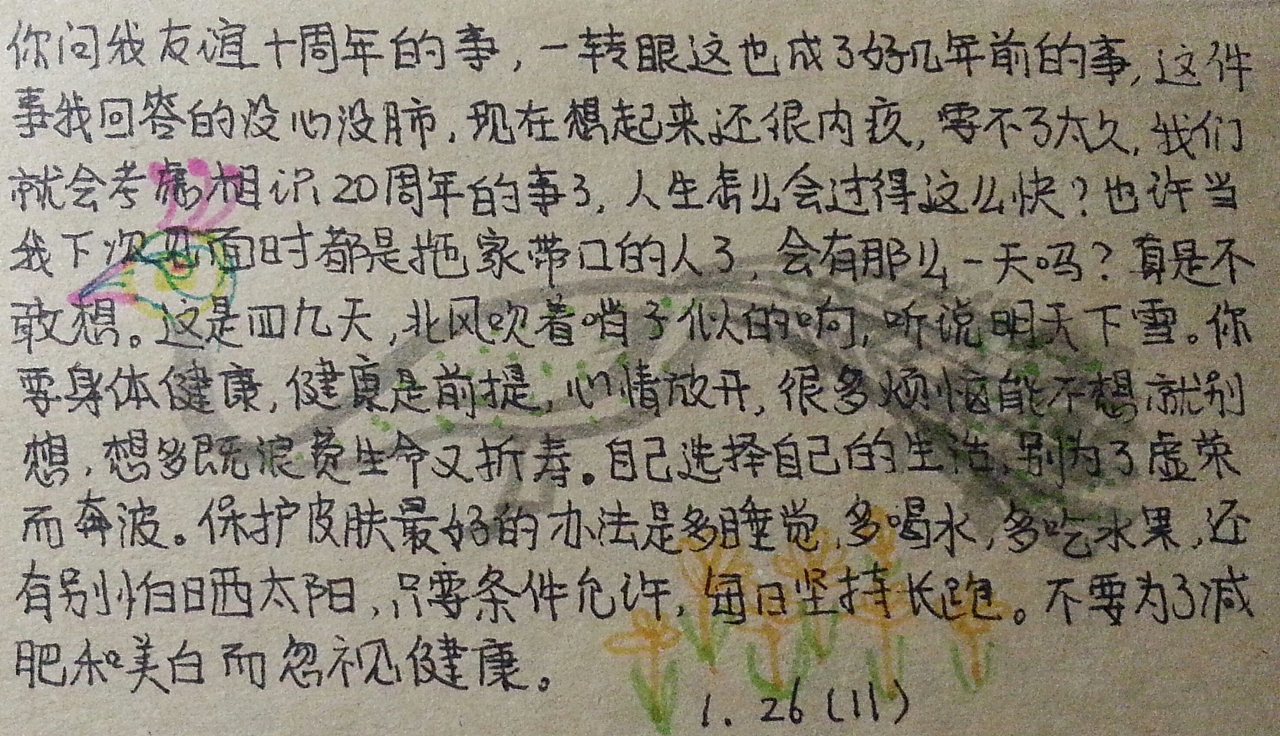 你问我友谊十周年的事,一转眼这也成了好几年前的事,这件
事我回答的没心没肺,现在想起来还很内疚,要不了太久,我们
就会考虑相识20周年的事了,人生怎么会过得这么快?也许当
我下次见面时都是拖家带口的人了,会有那么一天吗?真是不
敢想。这是四九天,北风吹着哨子似的响,听说明天下雪。你
要身体健康,健康是前提,心情放开,很多烦恼能不想就别
想,想多既浪费生命又折寿。自己选择自己的生活,别为了虚荣
而奔波。保护皮肤最好的办法是多睡觉,多喝水,多吃水果,还
有别怕日晒太阳,只要条件允许,每日坚持长跑。不要为了减
肥和美白而忽视健康。
1.26(11)